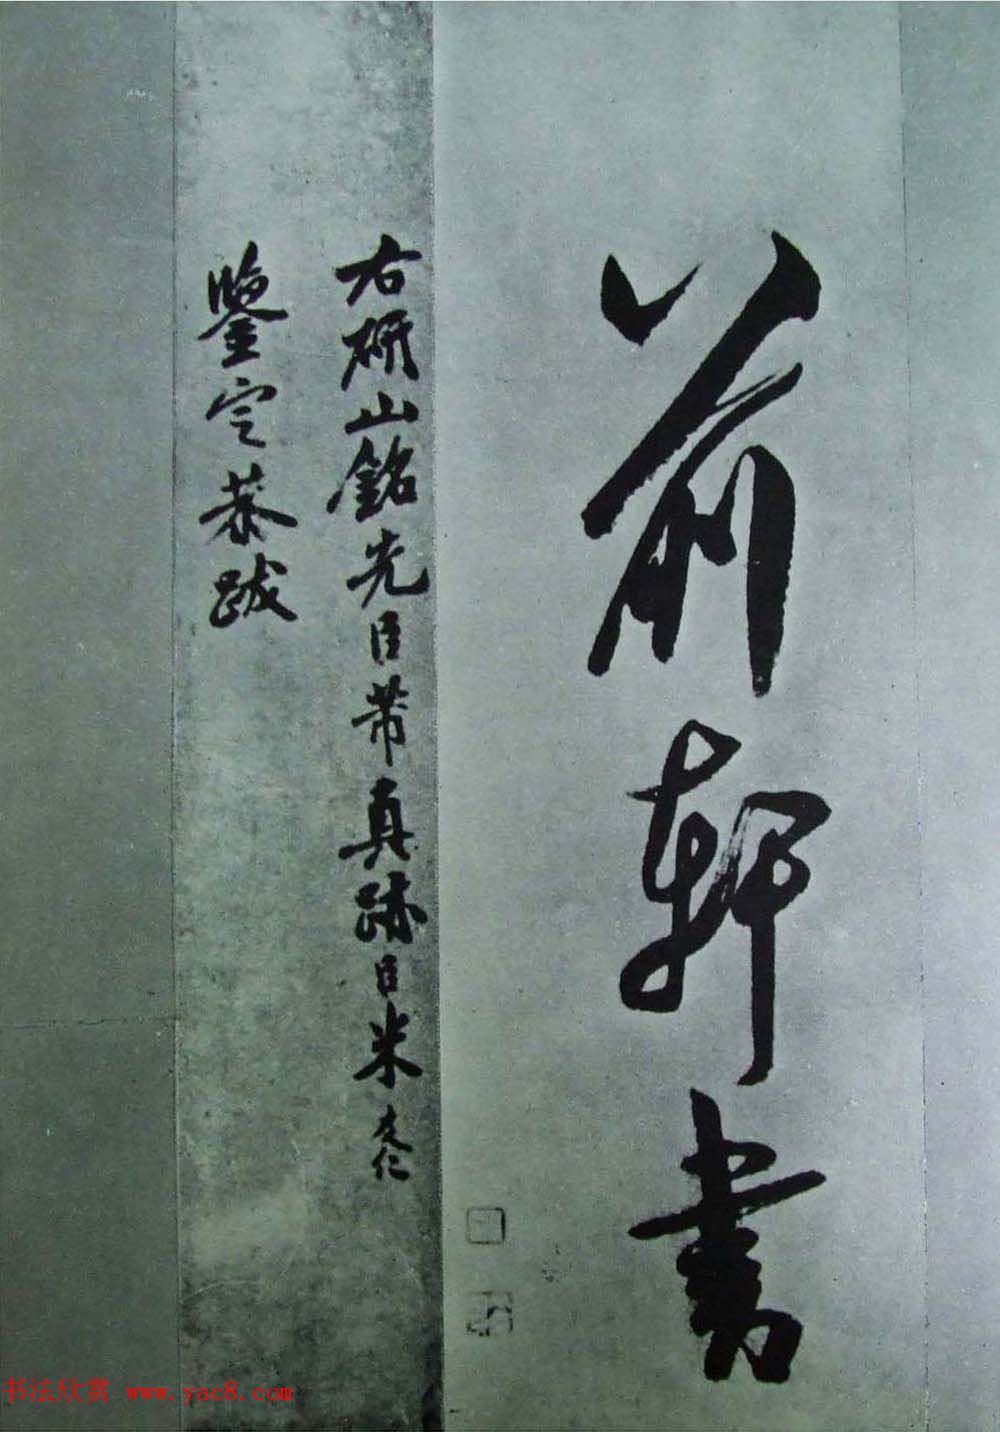 前軒書
右研山銘先臣芾真跡臣米友仁
鑒定恭跋
书法欣赏 www.yac8.com